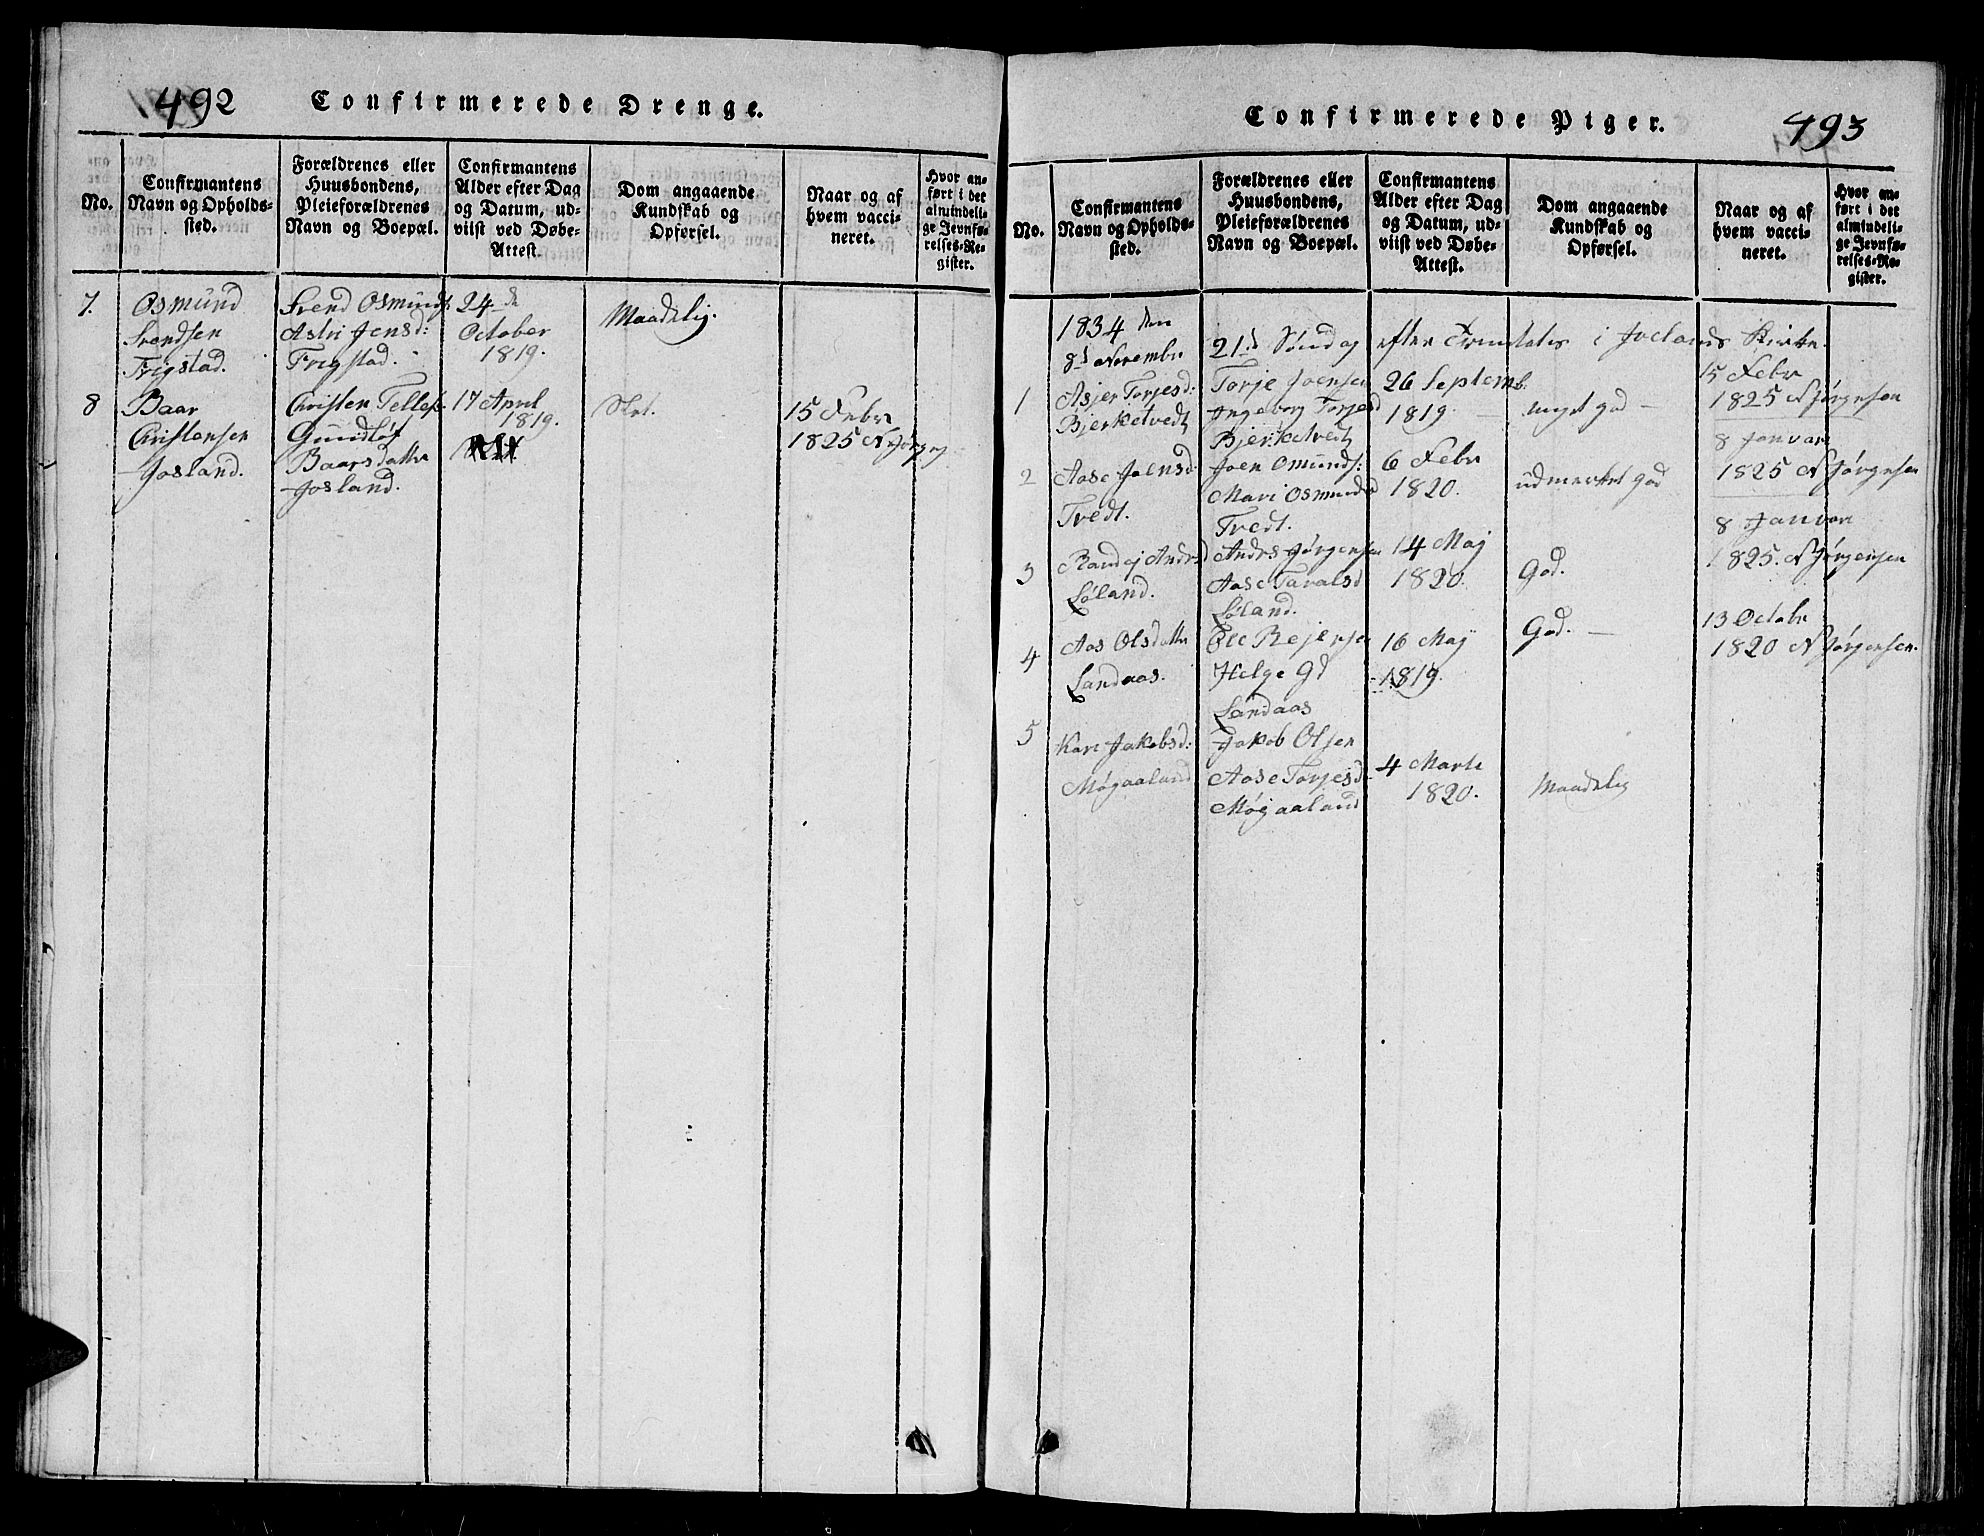 492 Confirmerede Drenge.
No.
Confirmantens
Navn og Opholds-
sted.
Forældrenes eller
Huusbondens,
Pleieforældrenes
Navn og Boepæl.
Confirmantens
Alder efter Dag
og Datum, ud-
viist ved Døbe-
Attest.
Dom angaaende
Kundskab og
Opførsel.
Naar og af
hvem vacci-
neret.
Hvor an-
ført i det
almindeli-
ge Jevnfø-
relses-Re-
gister.
7.
Osmund
Svendsen
Frigstad.
Svend Osmunds.
Astri Jensd:
Frigstad.
24de
October
1819.
Maadelig.
8
Baar
Christensen
Josland.
Christen Tellefs.
Gunildløf
Baarsdatter
Josland.
17 April
1819.
Slet.
15 Febr
1825 N Jørg
Confirmerede Piger. 493
No.
Confirmantens
Navn og Opholds-
sted.
Forældrenes eller
Huusbondens,
Pleieforældrenes
Navn og Boepæl.
Confirmantens
Alder efter Dag
og Datum, ud-
viist ved Døbe-
Attest.
Dom angaaende
Kundskab og
Opførsel.
Naar og af
hvem vacci-
neret.
Hvor an-
ført i det
almindeli-
ge Jevnfø-
relses-Re-
gister.
1834 den
8d Novembr 21de Søndag efter Trinitatis i Kirke.
1
Asjer Torjesd:
Bjerketvedt
Torje Joensen
Ingeborg Torjesd
Bjerketvedt
26 Septemb.
1819.
meget god
15 Febr
1825 N Jørgensen
2
Aase Joensd:
Tvedt.
Joen Omunds:
Mari Osmundsd
Tvedt.
6 Febr
1820.
udmerket god
8 Januar
1825 N Jørgensen
3
Randej Andrsd
Løland.
Andrs Jørgensen
Aase Tavalsd
Løland.
14 Maj
1820.
God.
8 Januar
1825. N Jørgensen
4
Aas Olsdatter
Landaas.
Ole Rejersen
Helge Gd
Landaas
16 Maj
1819.
God.
13 Octobr
1820 N Jørgensen.
5
Kari Jakobsd:
Møgaaland
Jakob Olsen
Aase Torjesd
Møgaaland
4 Marts
1820.
Maadelig